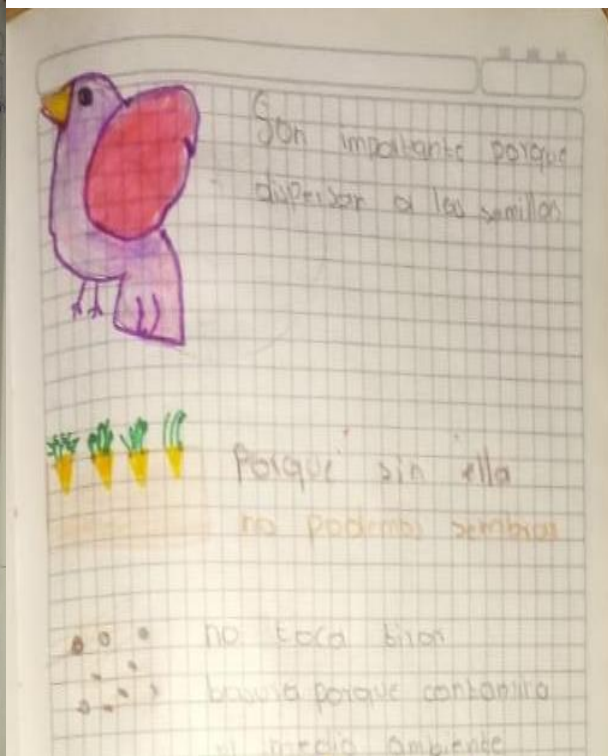 Son importante porque
dispersar a las semillas
Porque sin ella
no podemos sembrar
no toca tirar
basura porque contamina
el medio ambiente